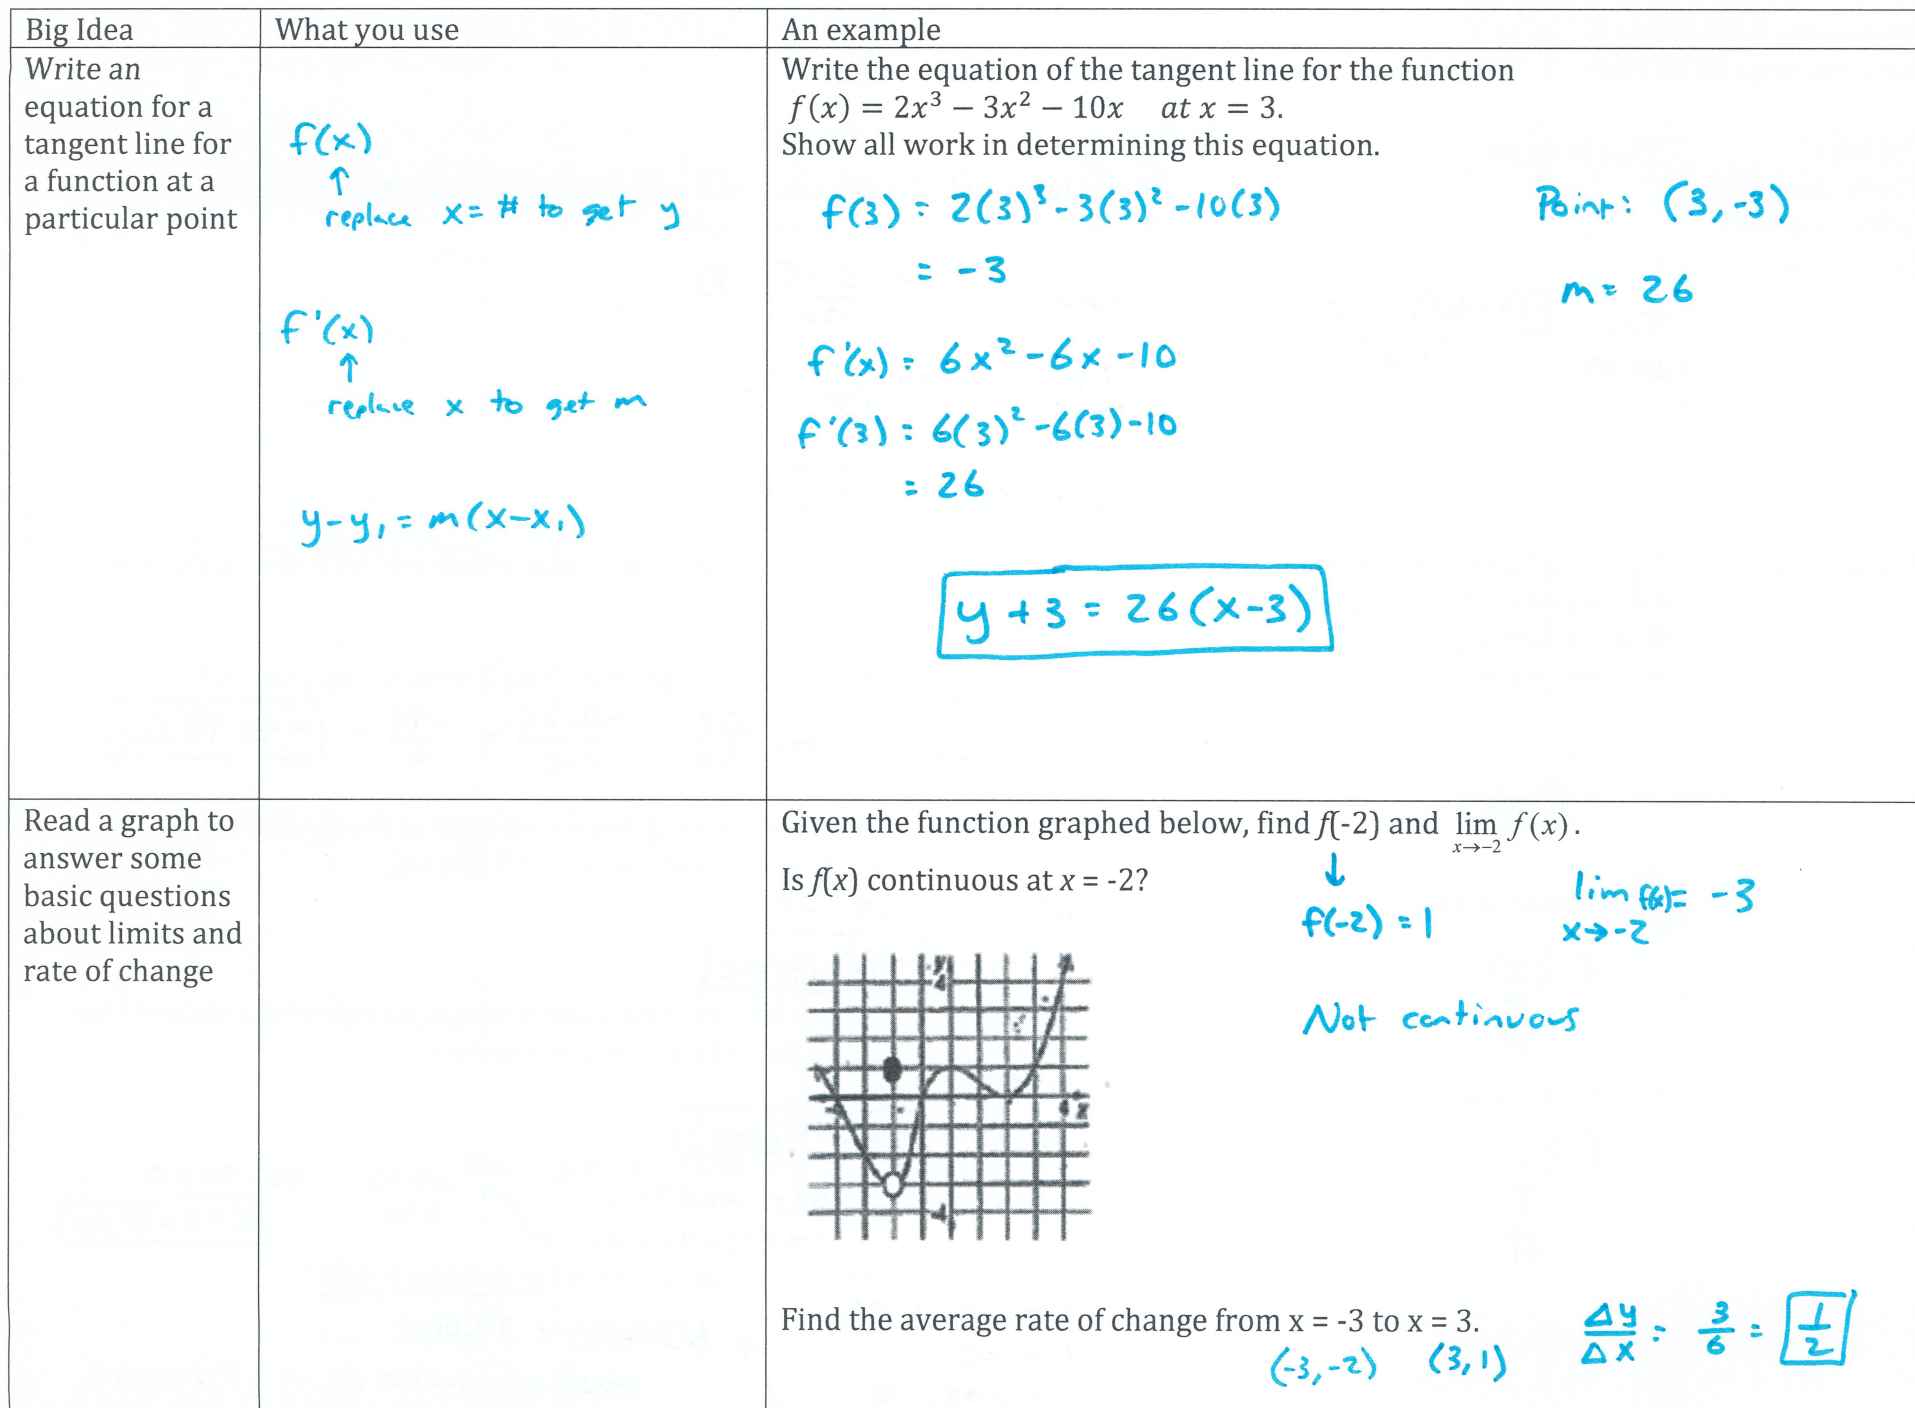 Big Idea
What you use
An example
Write an
equation for a
tangent line for
a function at a
particular point
f(x)
↑
replace x = # to get y
f'(x)
↑
replace x to get m
y - y₁ = m(x - x₁)
Write the equation of the tangent line for the function
f(x) = 2x³ − 3x² − 10x at x = 3.
Show all work in determining this equation.
f(3) = 2(3)³ - 3(3)² - 10(3)
= -3
Point: (3, -3)
m = 26
f'(x) = 6x² - 6x - 10
f'(3) = 6(3)² - 6(3) - 10
= 26
y + 3 = 26(x - 3)
Read a graph to
answer some
basic questions
about limits and
rate of change
Given the function graphed below, find f(-2) and lim f(x).
x→−2
Is f(x) continuous at x = -2?
↓
f(-2) = 1
lim f(x) = -3
x→-2
Not continuous
y
4
4 x
-4
Find the average rate of change from x = -3 to x = 3.
(-3, -2) (3, 1)
Δy/Δx = 3/6 = 1/2